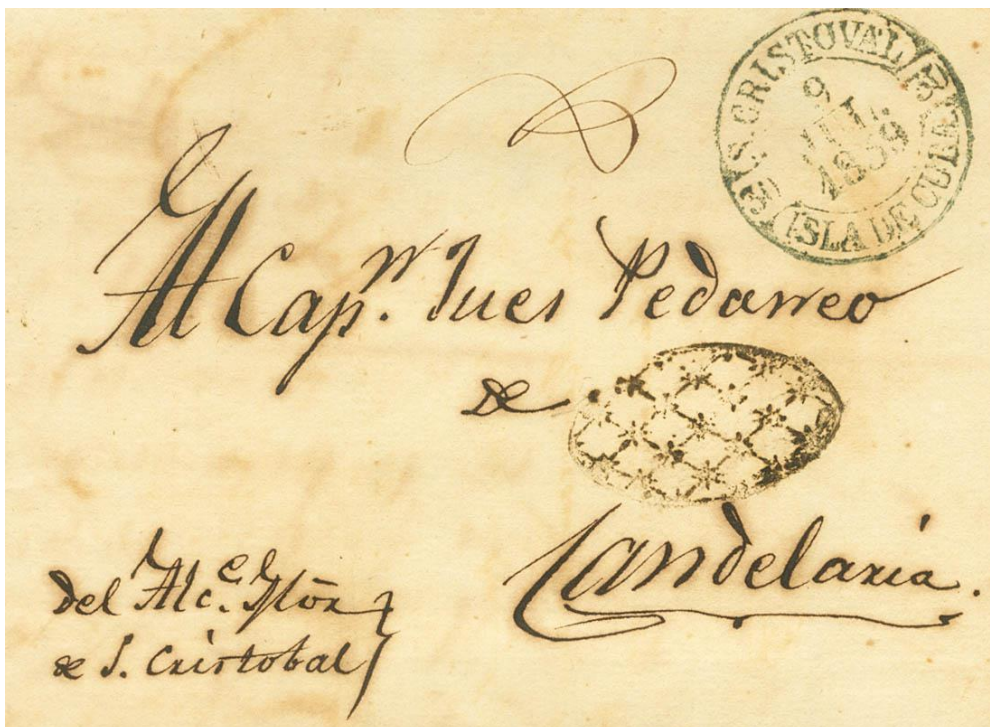 S. CRISTOVAL
9
JUL.
1859
ISLA DE CUBA
Al Cap.n Juez Pedaneo
de
Candelaria.
del Alc.e
de S. Cristobal